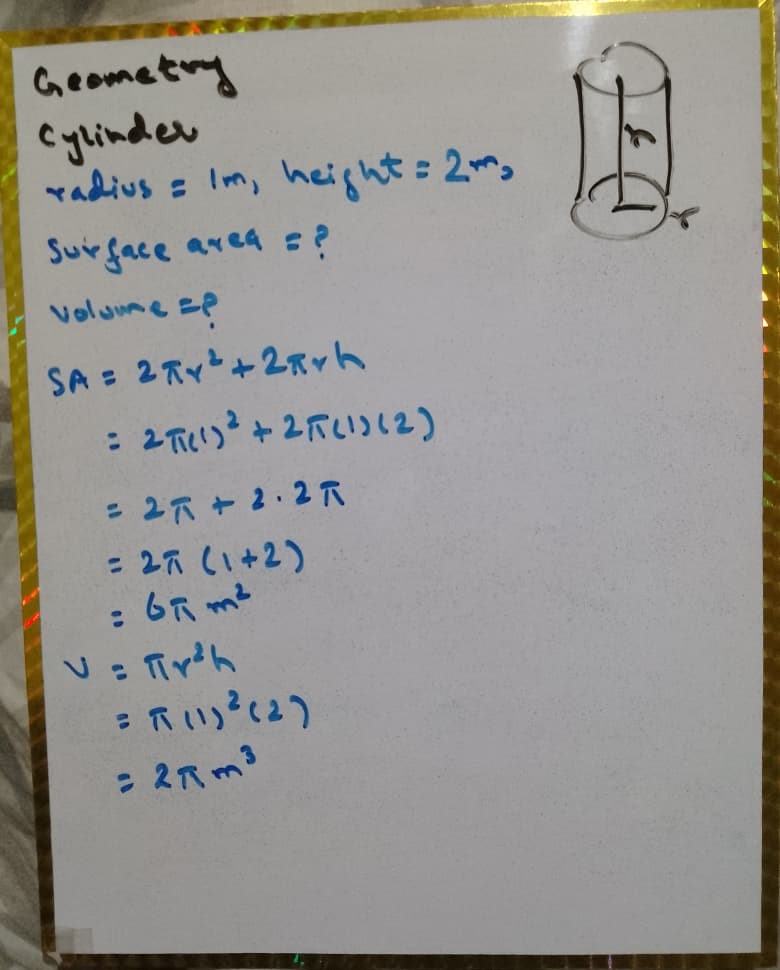 Geometry
Cylinder
radius = 1m, height = 2m,
Surface area = ?
Volume = ?
SA = 2πr² + 2πrh
= 2π(1)² + 2π(1)(2)
= 2π + 2.2π
= 2π (1+2)
= 6π m²
V = πr²h
= π(1)²(2)
= 2π m³
h
r